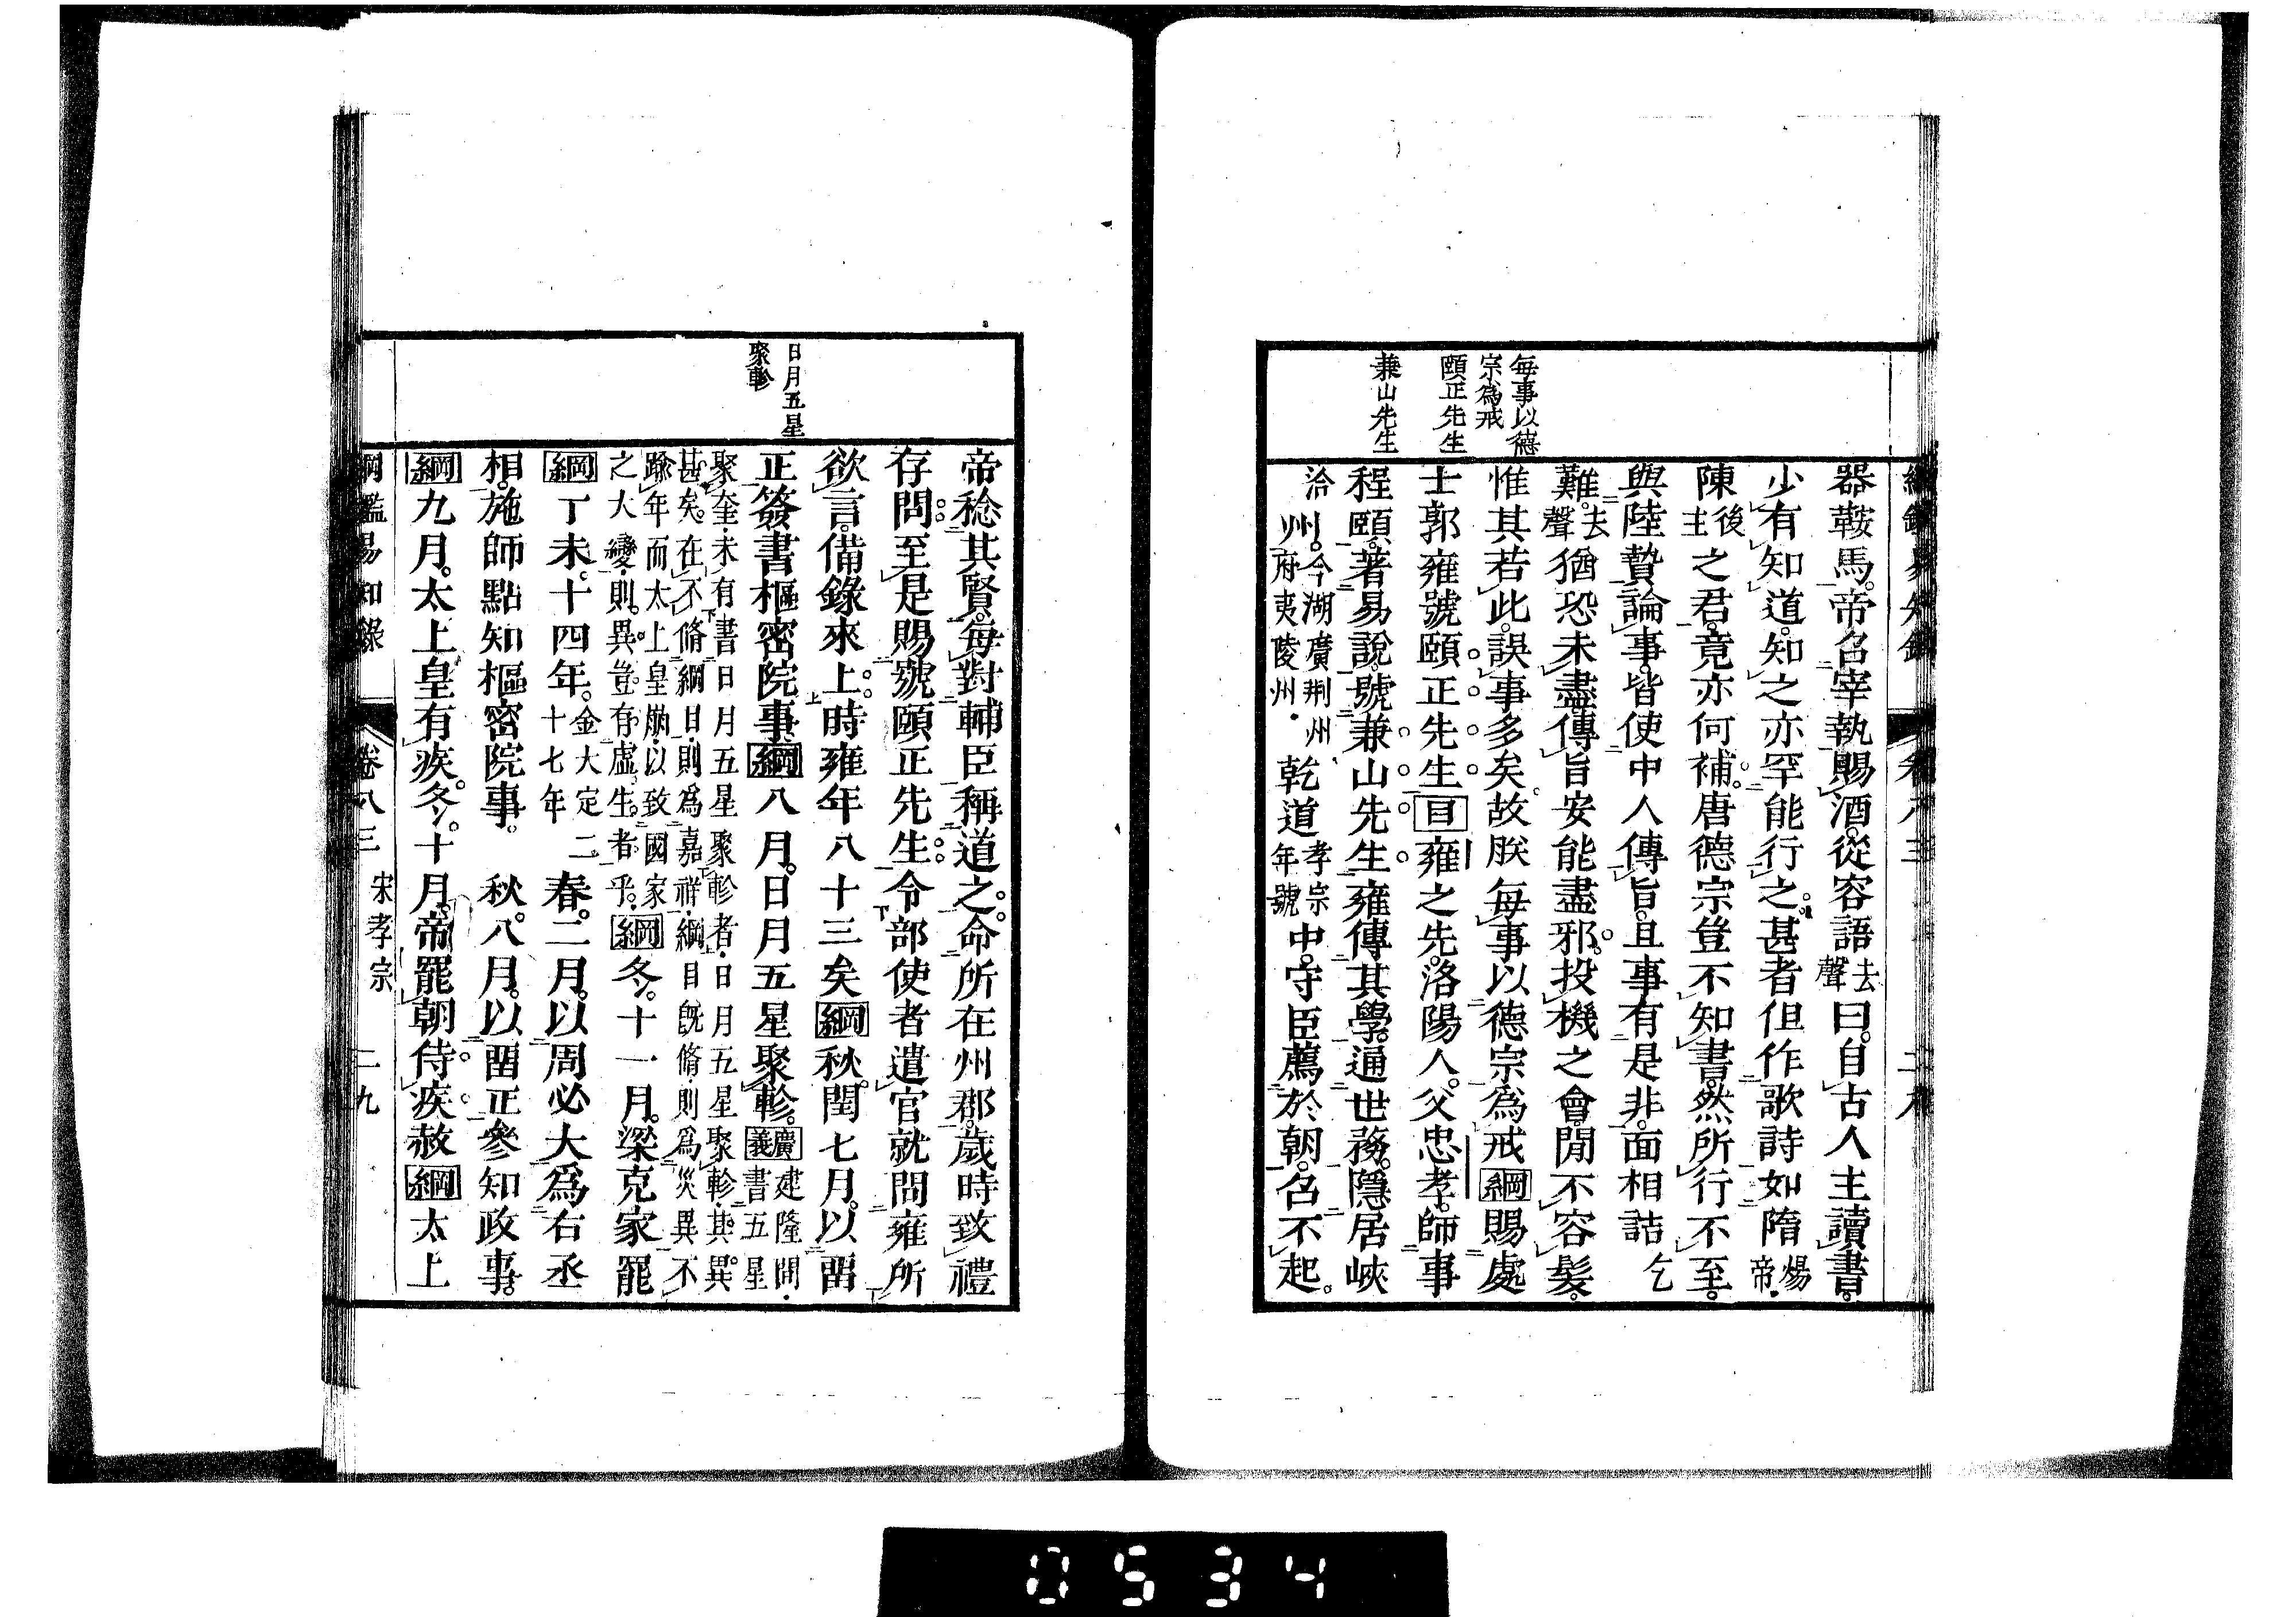 每事以德
宗為戒
頤正先生
兼山先生
器鞍馬。帝召宰執賜酒。從容語去聲曰。自古人主讀書。
少有知道。知之亦罕能行之。甚者但作歌詩如隋煬帝。
陳後主之君。竟亦何補。唐德宗豈不知書。然所行不至。
與陸贄論事。皆使中人傳旨。且事有是非。面相詰乞
難。去聲猶恐未盡。傳旨安能盡邪。投機之會。閒不容髮。
惟其若此。誤事多矣。故朕每事以德宗為戒綱賜處
士郭雍號頤正先生目雍之先。洛陽人。父忠孝。師事
程頤。著易說。號兼山先生。雍傳其學。通世務。隱居峽
洽州。今湖廣荆州府夷陵州。乾道孝宗年號中。守臣薦於朝。召不起。
日月五星
聚軫
帝稔其賢。每對輔臣稱道之。命所在州郡。歲時致禮
存問。至是賜號頤正先生。令部使者遣官就問雍所
欲言。備錄來上。時雍年八十三矣綱秋。閏七月。以畱
正簽書樞密院事綱八月。日月五星聚軫。廣義建隆間。書五星
聚奎。未有書日月五星聚軫者。日月五星聚軫。其異
甚矣。在不脩綱日。則為嘉祥。綱目既脩。則為災異。不
踰年而太上皇崩。以致國家
之大變。則異豈有虛生者乎。綱冬。十一月。梁克家罷
綱丁未。十四年。金大定二十七年春。二月。以周必大為右丞
相。施師點知樞密院事。秋。八月。以畱正參知政事。
綱九月。太上皇有疾。冬。十月。帝罷朝侍疾。赦綱太上
綱鑑易知錄 卷八三 宋孝宗 二九
0534